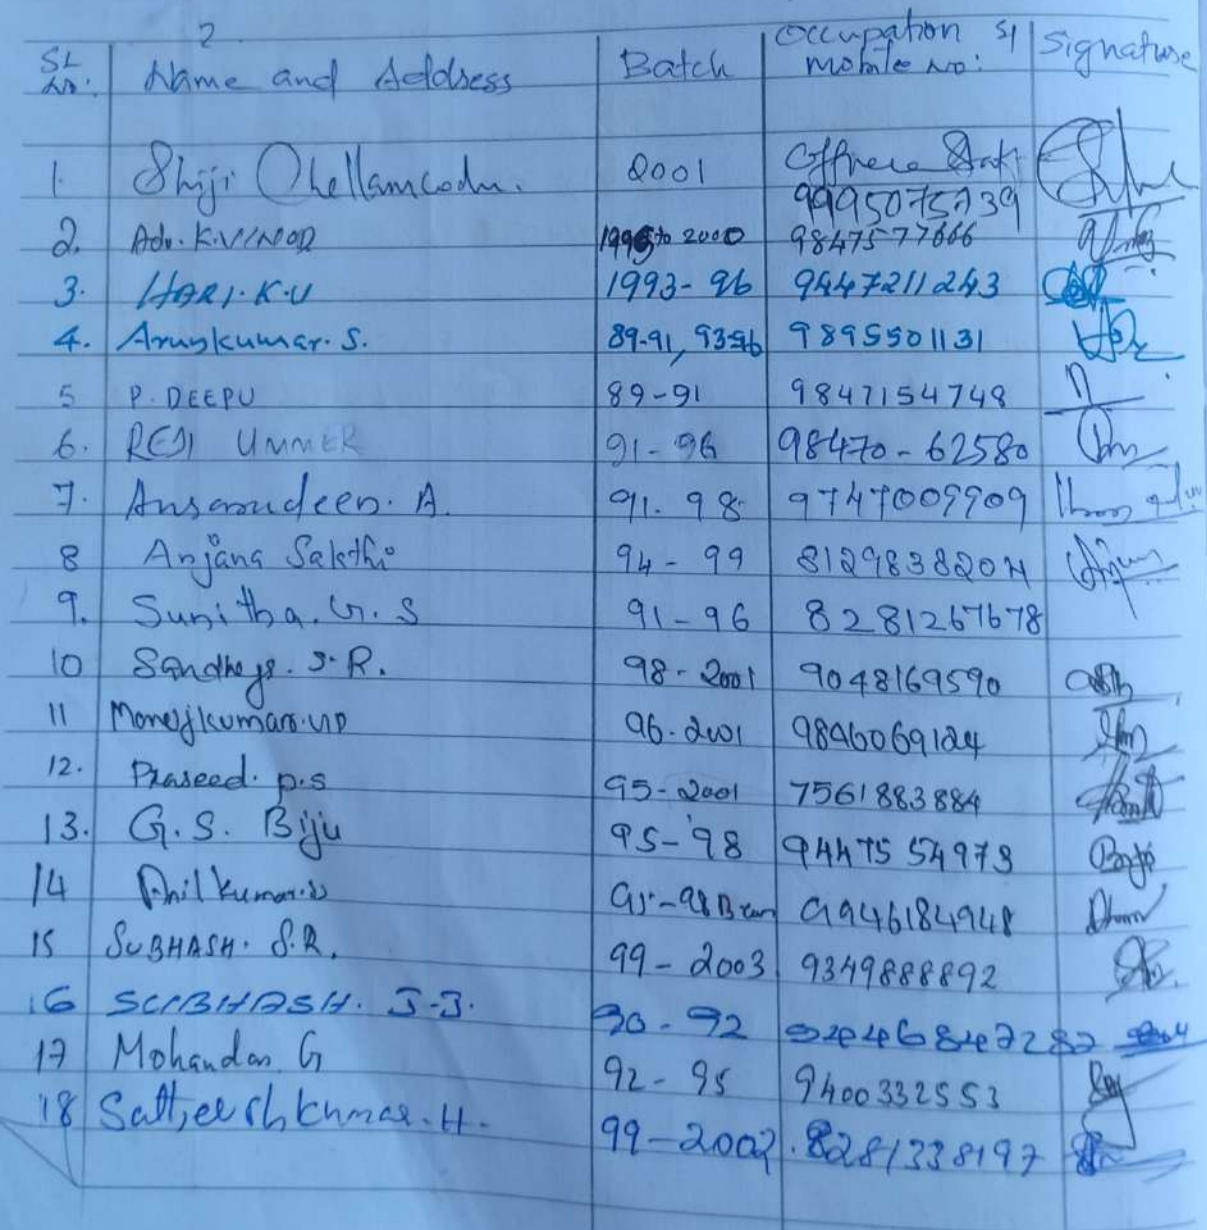 2
SL No: Name and Address Batch Occupation & Mobile No: Signature
1. Shiji 2001 Office Staff
9995075739
2. Adv. K.VINOD 1995 to 2000 9847577666
3. HARI.K.U 1993-96 9447211243
4. Arunkumar.S. 89-91, 93-96 9895501131
5 P. DEEPU 89-91 9847154748
6. REJI UMMER 91-96 98470-62580
7. Ansarudeen. A. 91.98 9747009909
8 Anjana Sakthi 94-99 8129838204
9. Sunitha. G. S 91-96 8281267678
10 Sandhya. S. R. 98-2001 9048169590
11 Manojkumar. 96-2001 9846069124
12. Praseed. P.S 95-2001 7561883884
13. G.S. Biju 95-'98 9447554973
14 Anilkumar.S 95-98 9946184948
15 SUBHASH. S.R. 99-2003 9349888892
16 SUBHASH. J.J. 90-92
17 Mohandas. G 92-95 9400332553
18 Satheeshkumar.H. 99-2002 8281338197